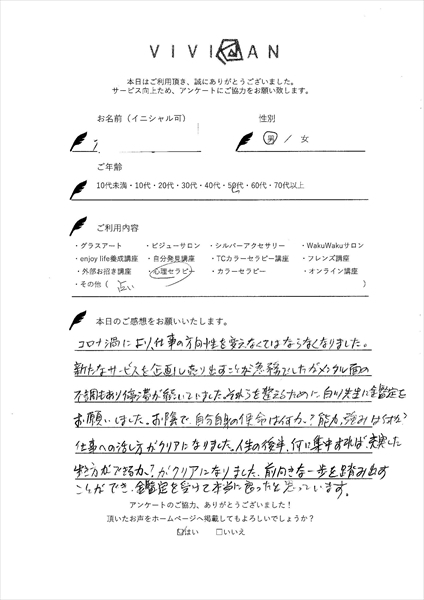 VIVIAN
本日はご利用頂き、誠にありがとうございました。
サービス向上ため、アンケートにご協力をお願い致します。
お名前（イニシャル可） 性別
男 ／ 女
ご年齢
10代未満・10代・20代・30代・40代・50代・60代・70代以上
ご利用内容
・グラスアート ・ビジューサロン ・シルバーアクセサリー ・WakuWakuサロン
・enjoy life養成講座 ・自分発見講座 ・TCカラーセラピー講座 ・フレンズ講座
・外部お招き講座 ・心理セラピー ・カラーセラピー ・オンライン講座
・その他（ 占い ）
本日のご感想をお願いいたします。
コロナ渦により、仕事の方向性を変えなくてはならなくなりました。
新たなサービスを企画し売り出すことが急務でしたがメンタル面の
不調もあり停滞が続いていました。それらを整えるために白川先生に鑑定を
お願いしました。お陰で、自分自身の使命は何か？能力、強みは何か？
仕事への活し方がクリアになりました。人生の後半、何に集中すれば、充実した
生き方ができるか？がクリアになりました。前向きな一歩を踏み出す
ことができ、鑑定を受けて本当に良かったと思っています。
アンケートのご協力、ありがとうございました！
頂いたお声をホームページへ掲載してもよろしいでしょうか？
☑はい □いいえ